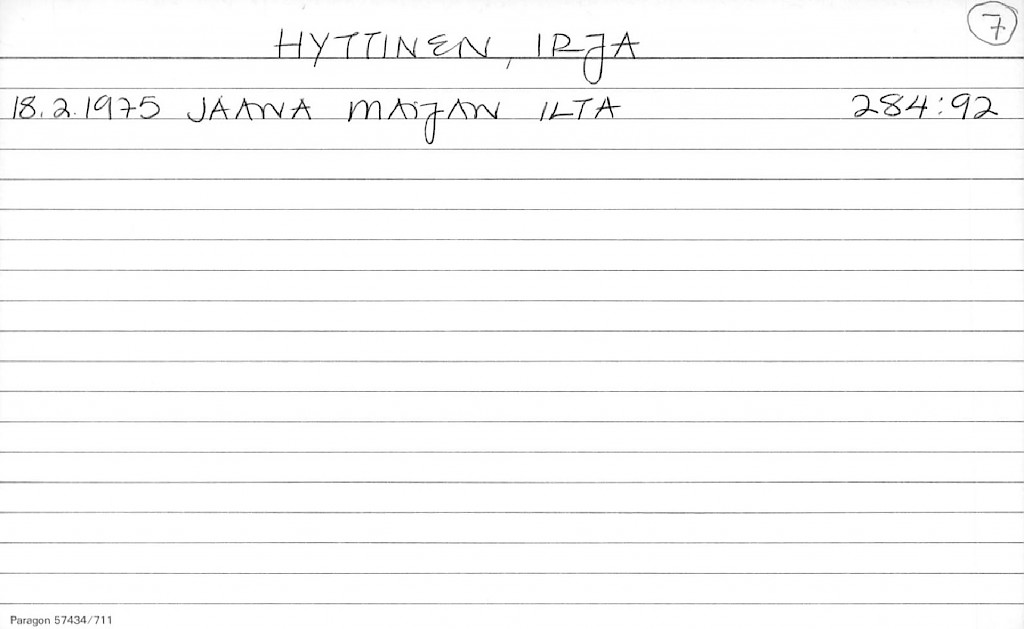 7
HYTTINEN, IRJA
18.2.1975 JAANA MAIJAN ILTA 284:92
Paragon 57434/711